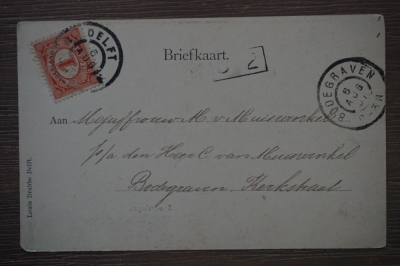 DELFT
Briefkaart.
2
BODEGRAVEN
8
AUG
Aan Mejuffrouw M. v Muiswinkel
p/a den Heer C van Muiswinkel
Bodegraven Kerkstraat
Louis Bredée Delft.